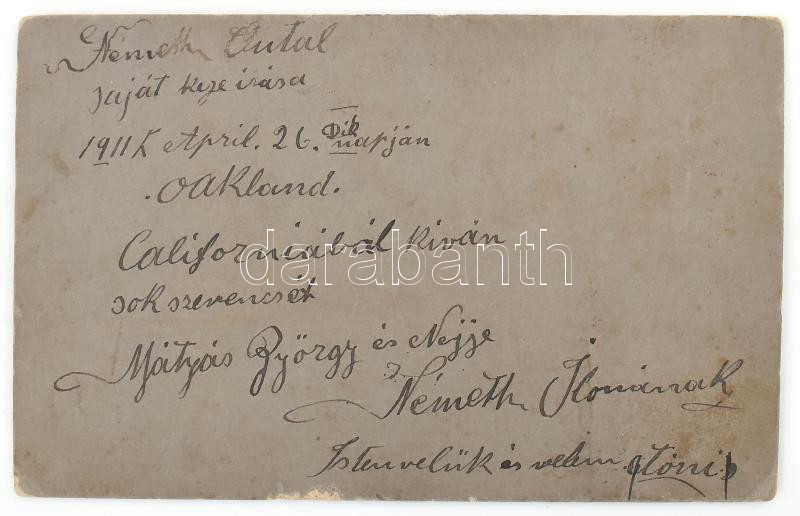 Németh Antal
saját keze irása
1911 April. 26. Dik napján
. Oakland.
Californiából kiván
sok szerencsét
Mátyás György és Nejje
Németh Ilonának
Isten velük és velem (Tóni)
darabanth